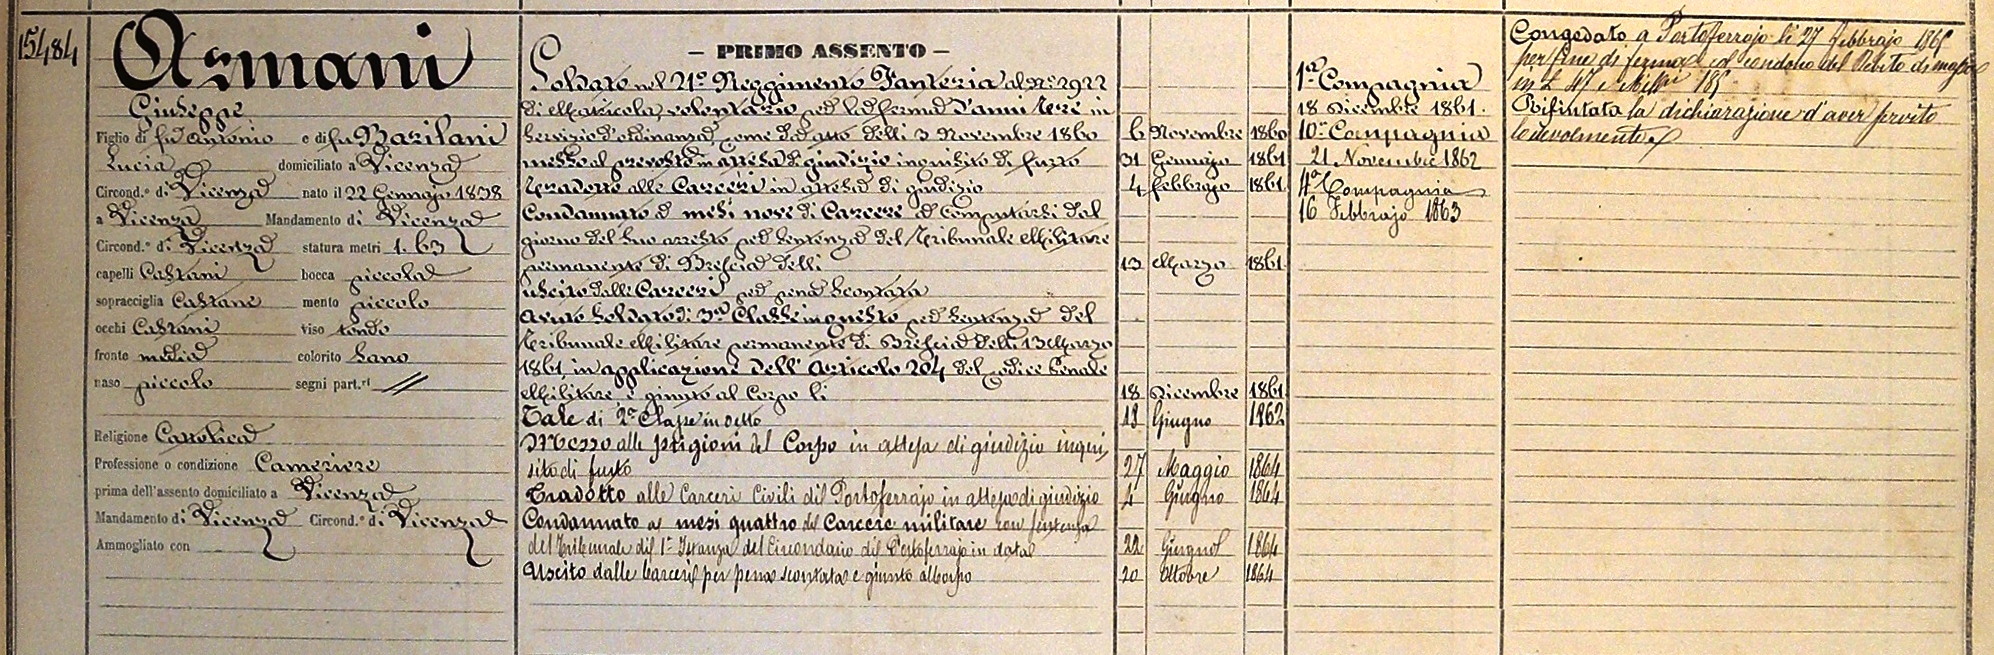 15484
Asmani
Giuseppe
Figlio di fu Antonio e di fu Basilani
Lucia domiciliato a Vicenza
Circond.º di Vicenza nato il 22 Gennajo 1838
a Vicenza Mandamento di Vicenza
Circond.º di Vicenza statura metri 1.63
capelli Castani bocca piccola
sopracciglia Castane mento piccolo
occhi Castani viso tondo
fronte media colorito Sano
naso piccolo segni part.ri //
Religione Cattolica
Professione o condizione Cameriere
prima dell'assento domiciliato a Vicenza
Mandamento di Vicenza Circond.º di Vicenza
Ammogliato con
— PRIMO ASSENTO —
Soldato nel 21º Reggimento Fanteria al Nº 2922
di Matricola, volontario per la ferma d'anni tre in
servizio d'ordinanza, come da atto delli 3 Novembre 1860 6 Novembre 1860
messo al prevosto in attesa di giudizio inquisito di furto 31 Gennajo 1861
Tradotto alle Carceri in attesa di giudizio 4 febbrajo 1861
Condannato a mesi nove di Carcere a computarsi dal
giorno del suo arresto per sentenza del Tribunale Militare
permanente di Brescia delli 13 Marzo 1861
uscito dalle Carceri per pena scontata
Avuto Soldato di 3ª Classe in questo per sentenza del
Tribunale Militare permanente di Brescia delli 13 Marzo
1861, in applicazione dell'Articolo 204 del codice Penale
Militare e giunto al Corpo li 18 Dicembre 1861
Tale di 2ª Classe in detto 18 Giugno 1862
Messo alle prigioni del Corpo in attesa di giudizio inqui
sito di furto 27 Maggio 1864
Tradotto alle Carceri Civili di Portoferrajo in attesa di giudizio 4 Giugno 1864
Condannato a mesi quattro di Carcere militare con sentenza
del Tribunale di 1ª Istanza del Circondario di Portoferrajo in data 22 Giugno 1864
Uscito dalle Carceri per pena scontata e giunto al Corpo 20 Ottobre 1864
1ª Compagnia
18 Dicembre 1861.
10ª Compagnia
21 Novembre 1862
4ª Compagnia
16 Febbrajo 1863
Congedato a Portoferrajo li 27 febbrajo 186
per fine di ferma col condono del Debito di massa
in L 47 Mill.i 18
Rifiutata la dichiarazione d'aver servito
lodevolmente